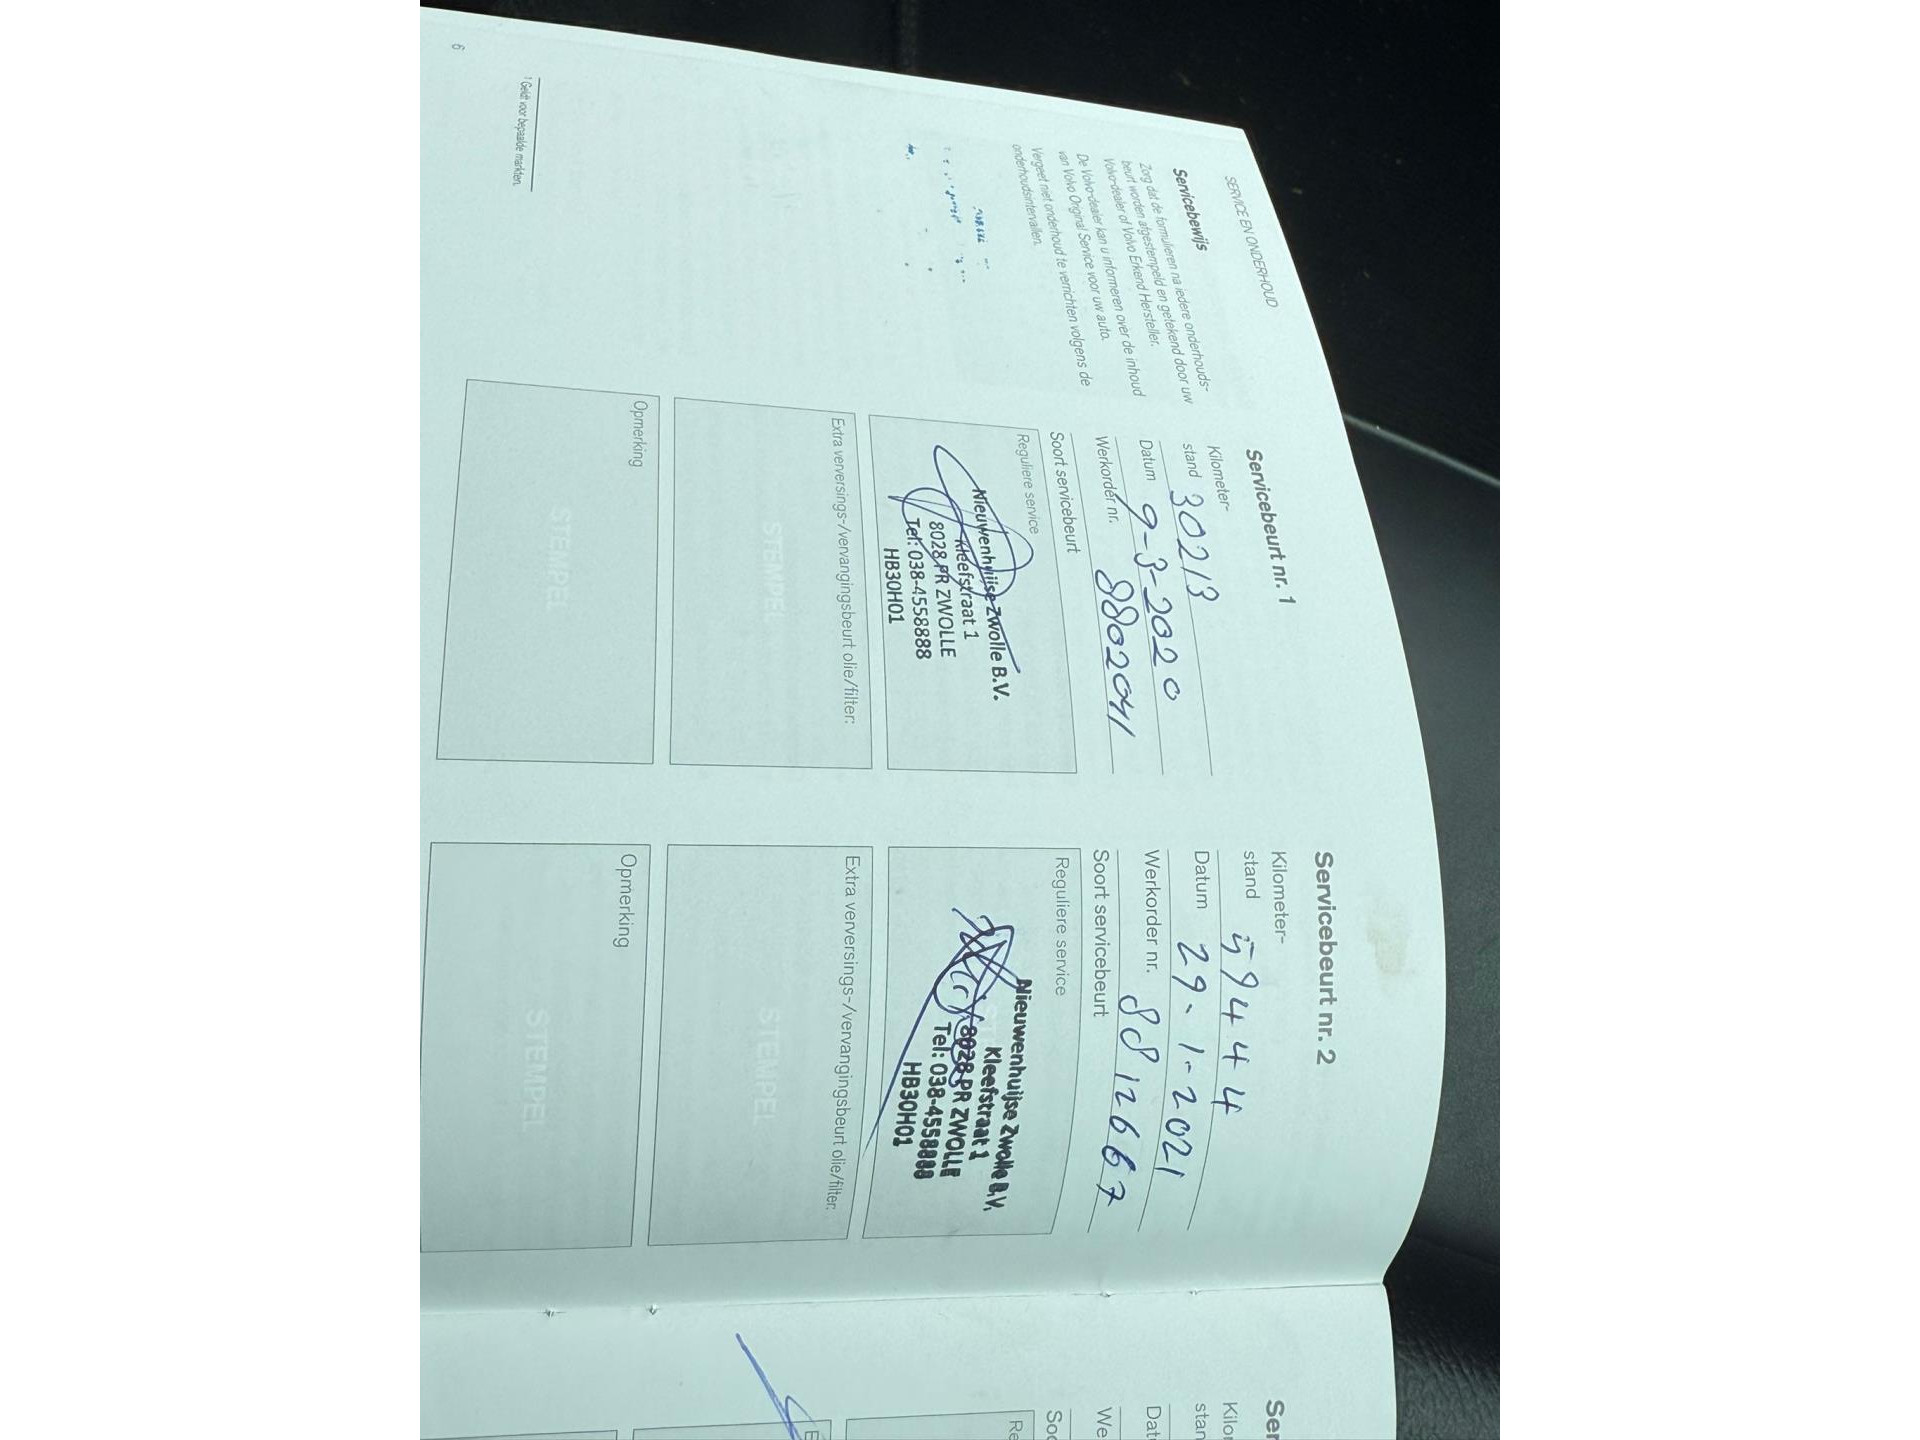 SERVICE EN ONDERHOUD
Servicebewijs
Zorg dat de formulieren na iedere onderhouds-
beurt worden afgestempeld en getekend door uw
Volvo-dealer of Volvo Erkend Hersteller.
De Volvo-dealer kan u informeren over de inhoud
van Volvo Original Service voor uw auto.
Vergeet niet onderhoud te verrichten volgens de
onderhoudsintervallen.
1 Geldt voor bepaalde markten.
6
Servicebeurt nr. 1
Kilometer-
stand 30213
Datum 9-3-2020
Werkorder nr. 8802041
Soort servicebeurt
Reguliere service
Nieuwenhuijse Zwolle B.V.
Kleefstraat 1
8028 PR ZWOLLE
Tel: 038-4558888
HB30H01
Extra verversings-/vervangingsbeurt olie/filter:
STEMPEL
Opmerking
STEMPEL
Servicebeurt nr. 2
Kilometer-
stand 59444
Datum 29-1-2021
Werkorder nr. 8812667
Soort servicebeurt
Reguliere service
Nieuwenhuijse Zwolle B.V.
Kleefstraat 1
8028 PR ZWOLLE
Tel: 038-4558888
HB30H01
Extra verversings-/vervangingsbeurt olie/filter:
STEMPEL
Opmerking
STEMPEL
Ser
Kilo
stan
Dat
We
Soo
Re
E